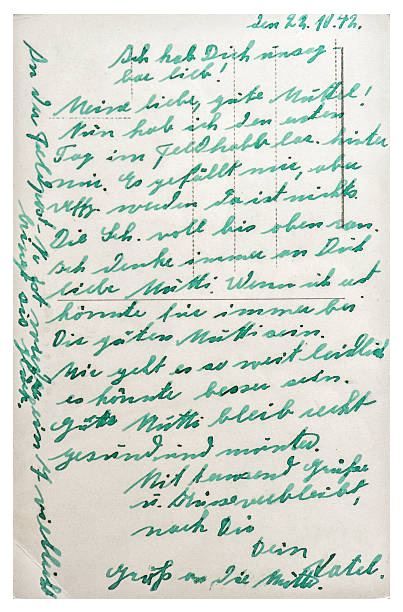 den 22.10.42.
Ich hab Dich unsag
bar lieb!
Meine liebe, gute Muttel!
Nun hab ich den ersten
Tag im hinter
mir. Es gefällt mir, aber
Uffz. werden da ist nichts.
Die Sch. voll bis oben ran.
Ich denke immer an Dich
liebe Mutti. Wenn ich erst
könnte für immer bei
Dir guten Mutti sein.
Mir geht es so weit leidlich
es könnte besser sein.
Gute Mutti bleib recht
gesund und munter.
Mit tausend Grüße
u. Küsse verbleibt,
nach Dir
Dein
Vatel.
Gruß an die Mutter.
An der
bringt sie Glück.